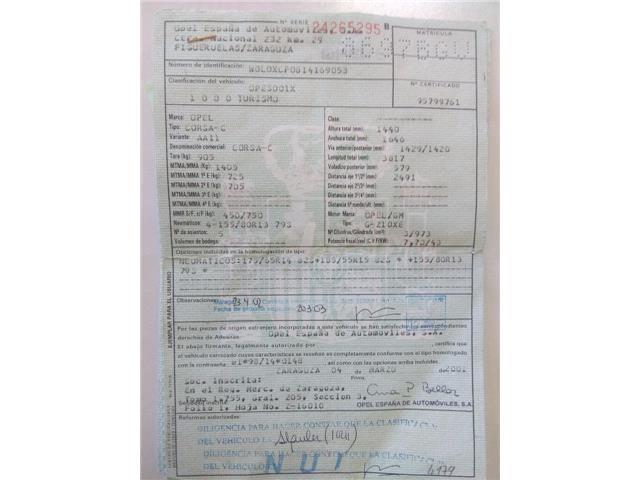 Nº SERIE 24265295 B
MATRICULA
Opel España de Automóviles, S.A.
Ctra. Nacional 232 km. 29
FIGUERUELAS/ZARAGOZA
8697BGV
Número de identificación: W0L0XCF0814169053
Clasificación del vehículo: OPES001X
Nº CERTIFICADO
1 0 0 0 TURISMO
95799761
Marca: OPEL
Tipo: CORSA-C
Variante: AA11
Denominación comercial: CORSA-C
Tara (kg) 905
MTMA/MMA (Kg) 1405
MTMA/MMA 1º E (kg) 725
MTMA/MMA 2º E (kg) 705
MTMA/MMA 3º E (kg)
MTMA/MMA 4º E (kg)
MMR S/F. c/F (kg) 450/750
Neumáticos: 4-155/80R13 79S
Nº de asientos: 5
Volumen de bodega:
Clase:
Altura total (mm): 1440
Anchura total (mm): 1646
Vía anterior/posterior (mm): 1429/1420
Longitud total (mm): 3817
Voladizo posterior (mm): 579
Distancia eje 1º/2º (mm): 2491
Distancia eje 2º/3º (mm):
Distancia eje 3º/4º (mm):
Motor: Marca: OPEL/GM
Tipo: G-Z10XE
Nº Cilindros/Cilindrada (cm³) 3/973
Potencia fiscal/real (C.V.F/KW): 7,70/43
Opciones incluidas en la homologación de tipo:
NEUMATICOS:175/65R14 82S*185/55R15 82S * *155/80R13
79S *
EJEMPLAR PARA EL USUARIO
Observaciones:
Por las piezas de origen extranjero incorporadas a este vehículo se han satisfecho los correspondientes
derechos de Aduanas. Opel España de Automóviles, S.A.
El abajo firmante, legalmente autorizado por certifica
que el vehículo carrozado cuyas características se reseñan es completamente conforme con el tipo homologado
con la contraseña e1*98/14*0148 así como con las opciones arriba incluidas.
ZARAGOZA 04 de MARZO de 2001
Soc. Inscrita: Firma
En el Reg. Merc. de Zaragoza,
Tomo 1.755, Gral. 205, Sección 3,
Folio 1, Hoja No. Z-16010
OPEL ESPAÑA DE AUTOMÓVILES, S.A.
Reformas autorizadas:
DILIGENCIA PARA HACER CONSTAR QUE LA CLASIFIC
DEL VEHICULO
DILIGENCIA PARA HACER CONSTAR QUE LA CLASIFIC
DEL VEHICULO
4179